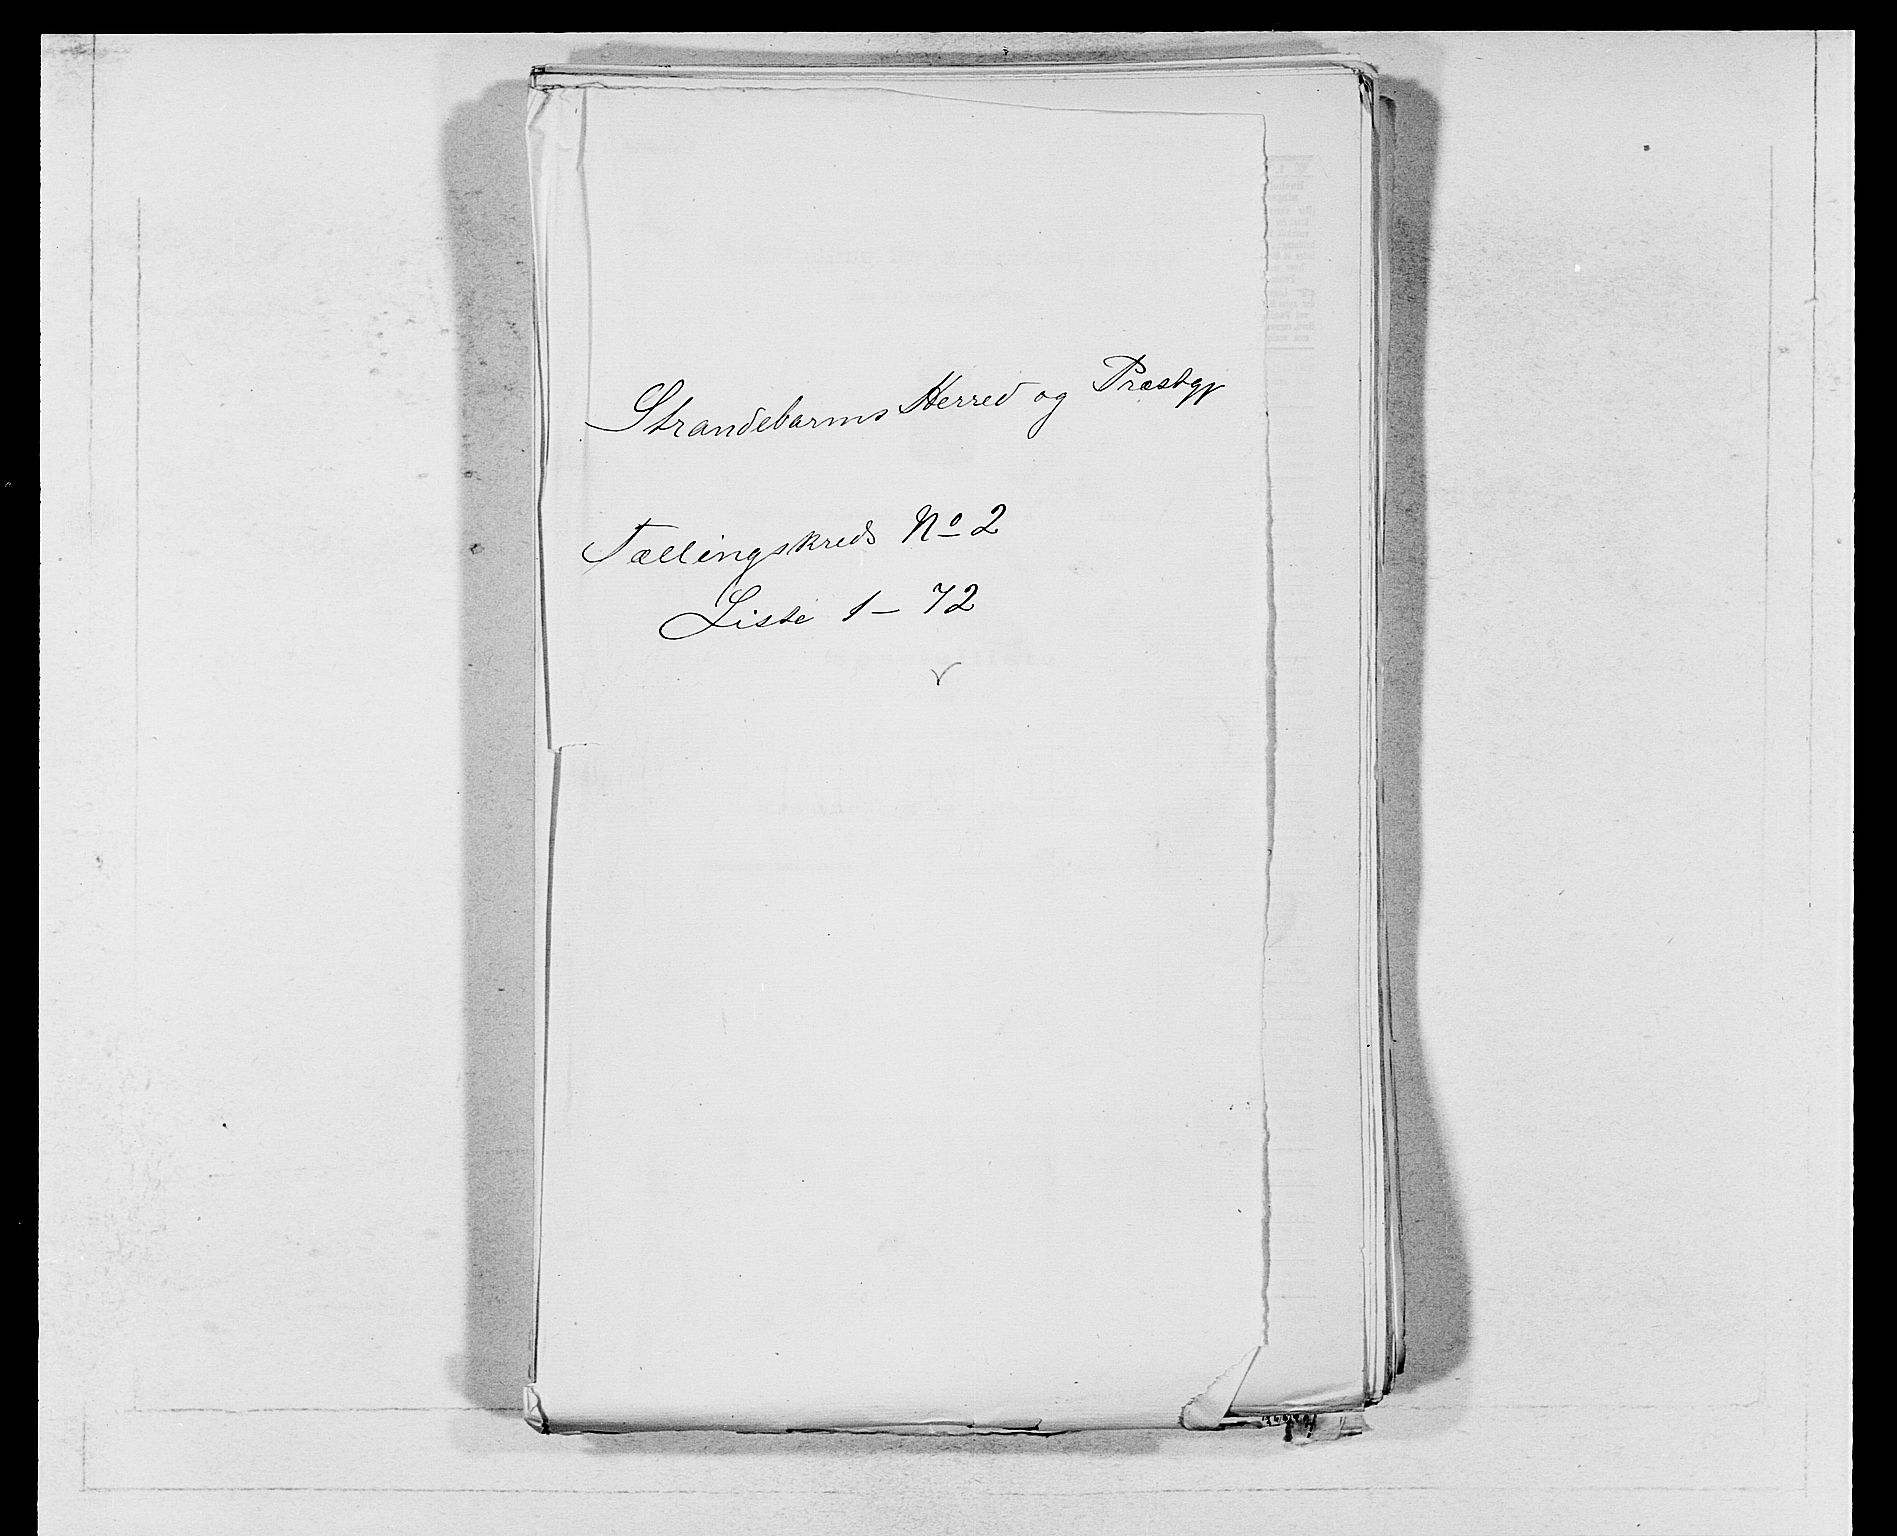 Strandebarms Herred og Præstgj
Tællingskreds No 2
Liste 1 - 72